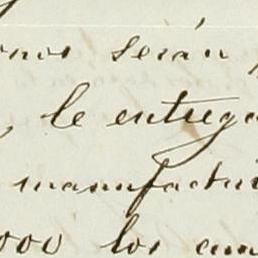 serán
le entrega
manufactu
000 los